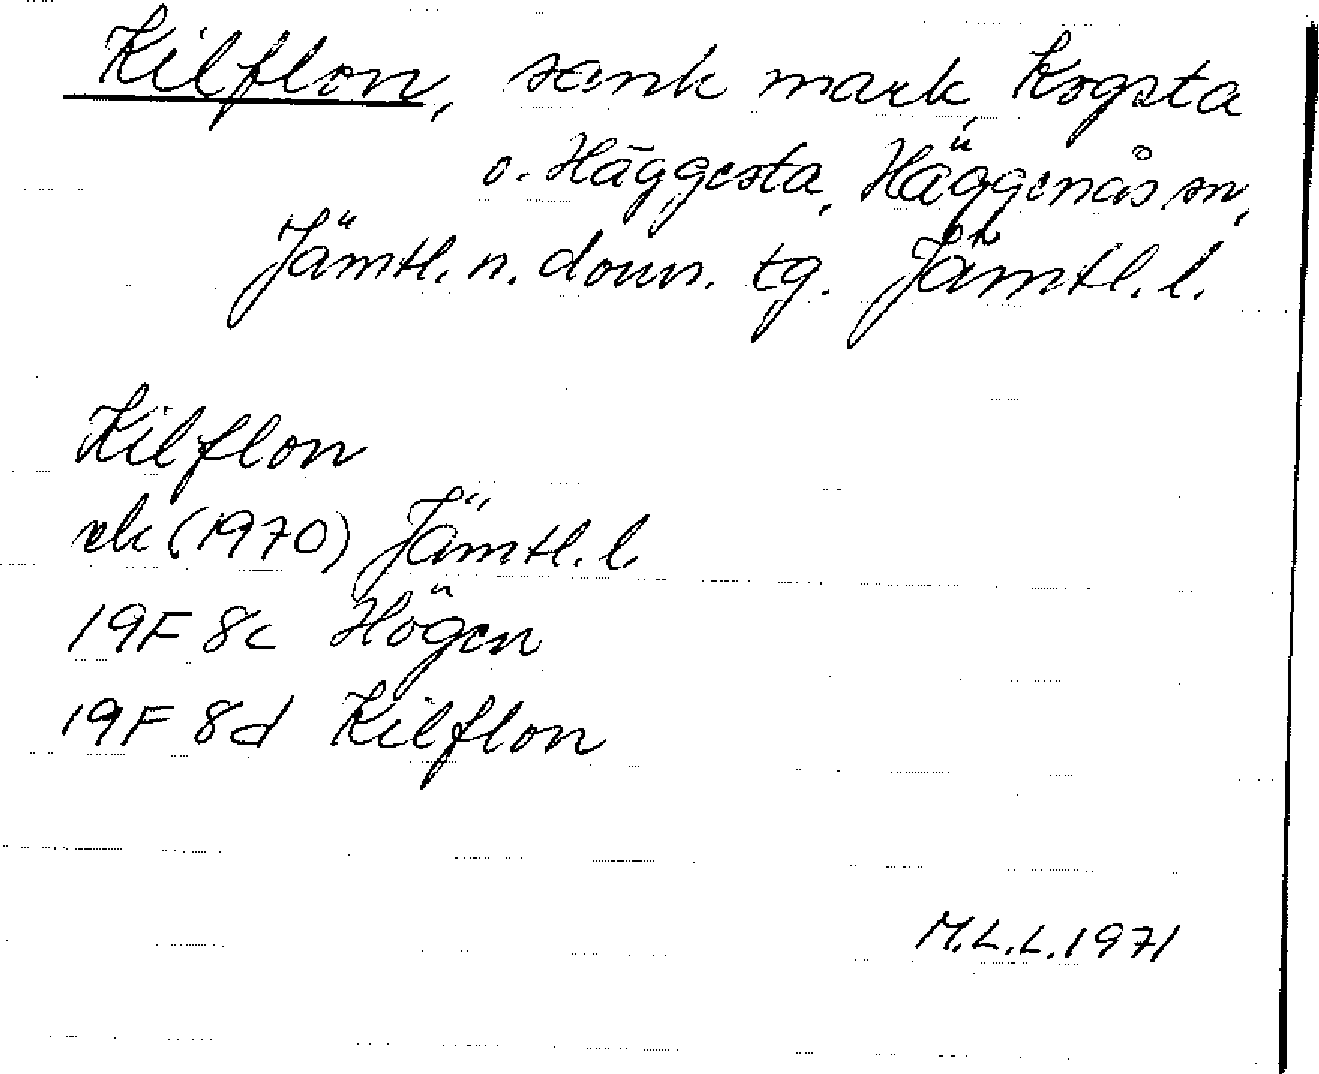 Kilflon, sank mark, Kogsta
o. Häggesta, Häggenås sn,
Jämtl. n. doms. tg. Jämtl. l.
Kilflon
ek (1970) Jämtl. l
19F 8c Högen
19F 8d Kilflon
M.L.L. 1971